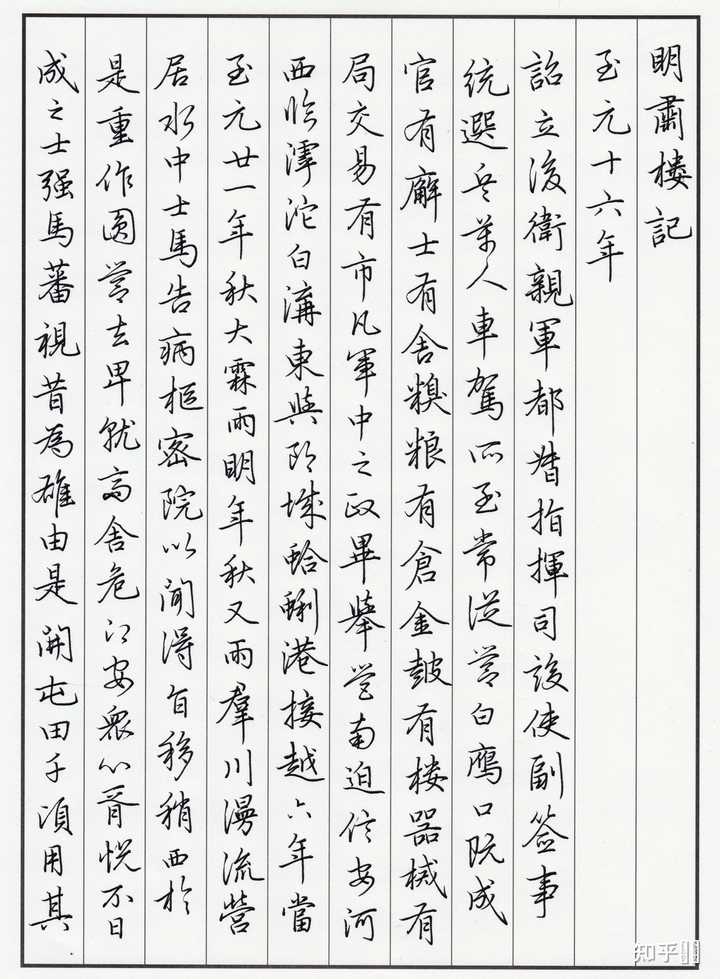 明肅樓記
至元十六年
詔立後衛親軍都督指揮司設使副簽事
統選兵萬人車駕所至常從營白鷹口既成
官有廨士有舍糗粮有倉金鼓有楼器械有
局交易有市凡軍中之政畢舉營南迫信安河
西临滹沱白溝東與郎城蛤蜊港接越六年當
至元廿一年秋大霖雨明年秋又雨羣川漫流營
居水中士馬告病樞密院以聞得旨移稍西於
是重作圆營去卑就高舍危即安眾心胥悅不日
成之士强馬蕃視昔為雄由是開屯田千頃用其
知乎